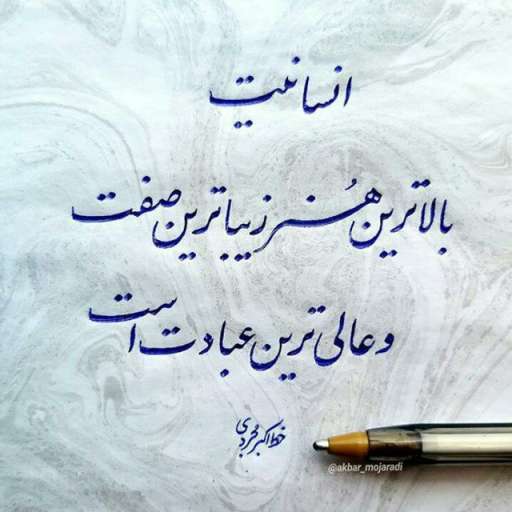 انسانیت
بالاترین هُنر زیباترین صفت
و عالی ترین عبادت است
خط اکبر مجردی
@akbar_mojaradi